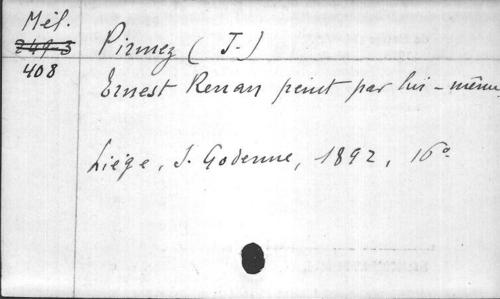 Mél.
249-3
408
Pirmez ( J.)
Ernest Renan peint par lui-même.
Liége, J. Godenne, 1892, 16º